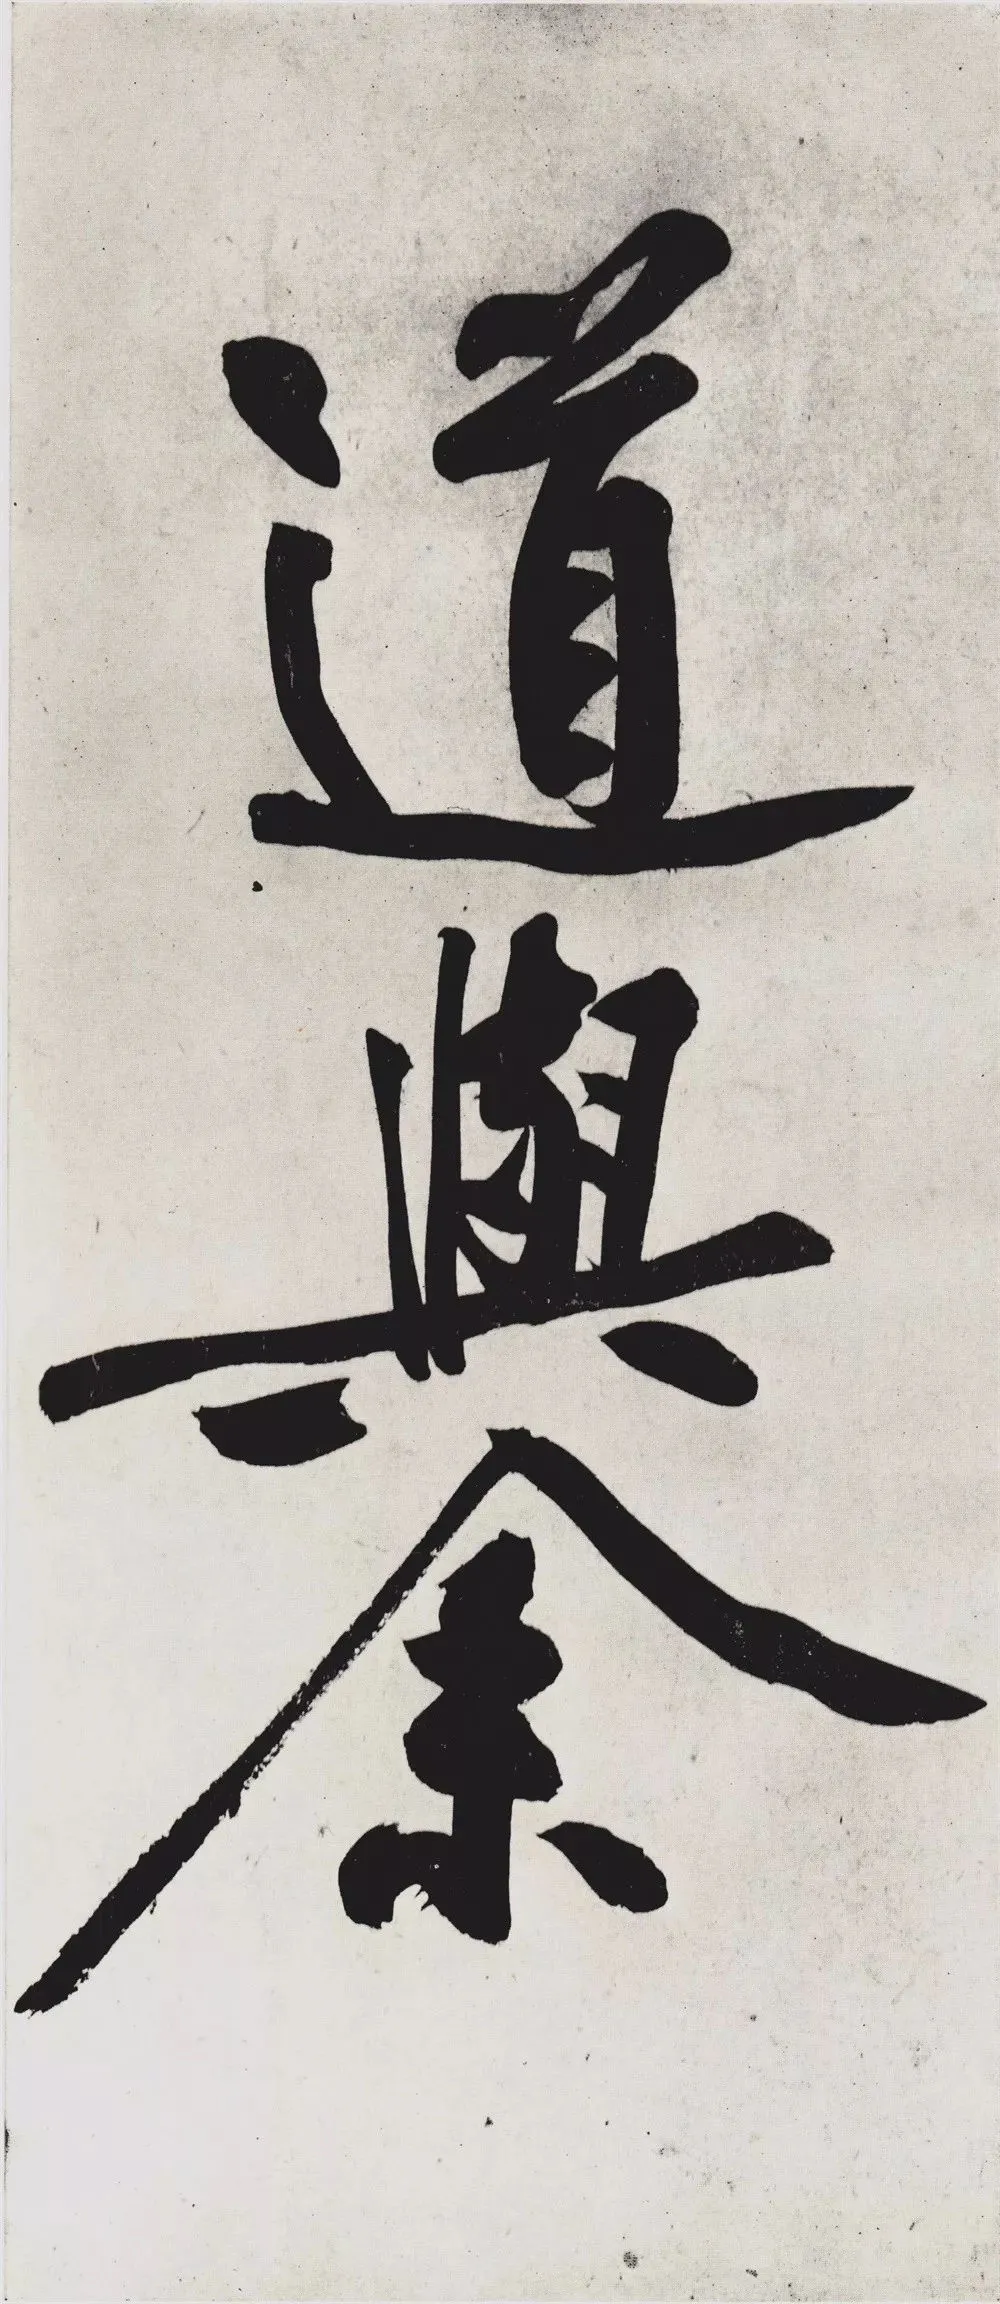 道與余